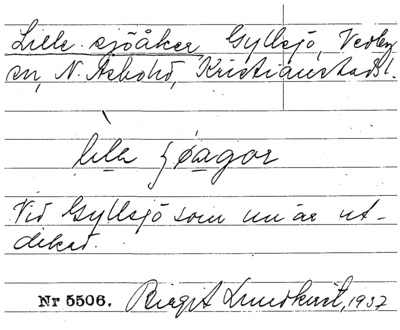 Lille sjöåker, Gyllsjö, Vedby
sn, N. Åsbohd, Kristianstads l.
lìla ʒøagor
Vid Gyllsjö som nu är ut-
dikad.
Nr 5506. Birgit Lundkvist, 1937